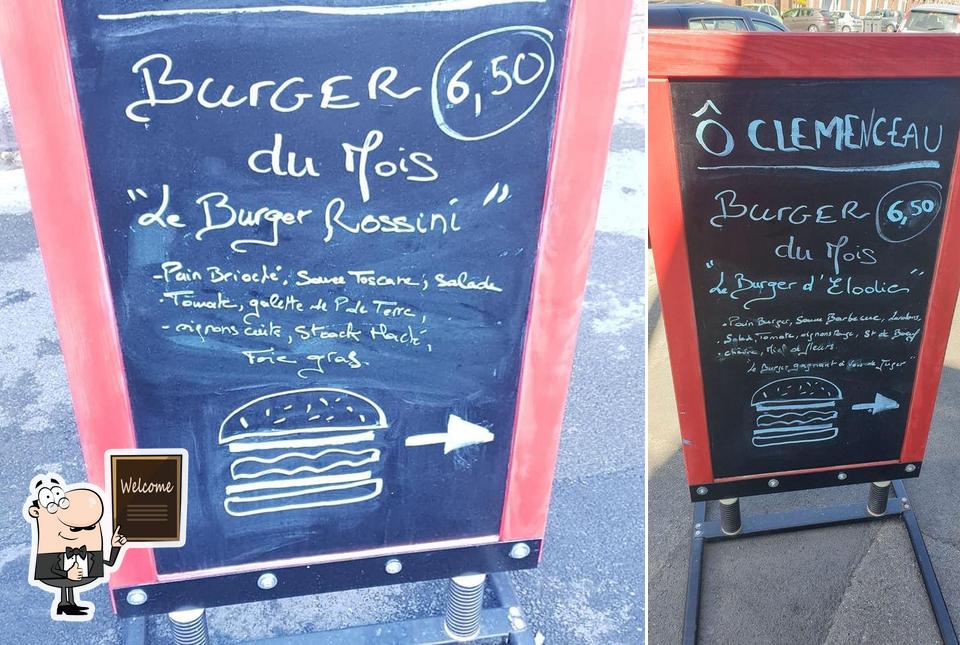 BURGER 6,50
du Mois
"Le Burger Rossini"
-Pain Brioché, Sauce Toscane, Salade
-Tomate, galette de P de Terre,
-oignons cuits, Steack Haché,
Foie gras.
Welcome
Ô CLEMENCEAU
BURGER 6,50
du Mois
"Le Burger d'Elodie"
-Pain Burger, Sauce Barbecue,
Salade, Tomate, oignons Rouge, St de Bœuf
chèvre, Miel et fleurs.
"Le Burger gagnant à